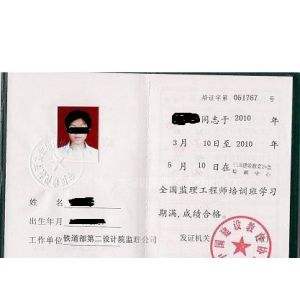 培证字第 051767 号
同志于 2010 年
3 月 10日至 2010 年
5 月 10日在
全国监理工程师培训班学习
期满,成绩合格。
发证机关
姓名
出生年月
工作单位 铁道部第二设计院监理公司